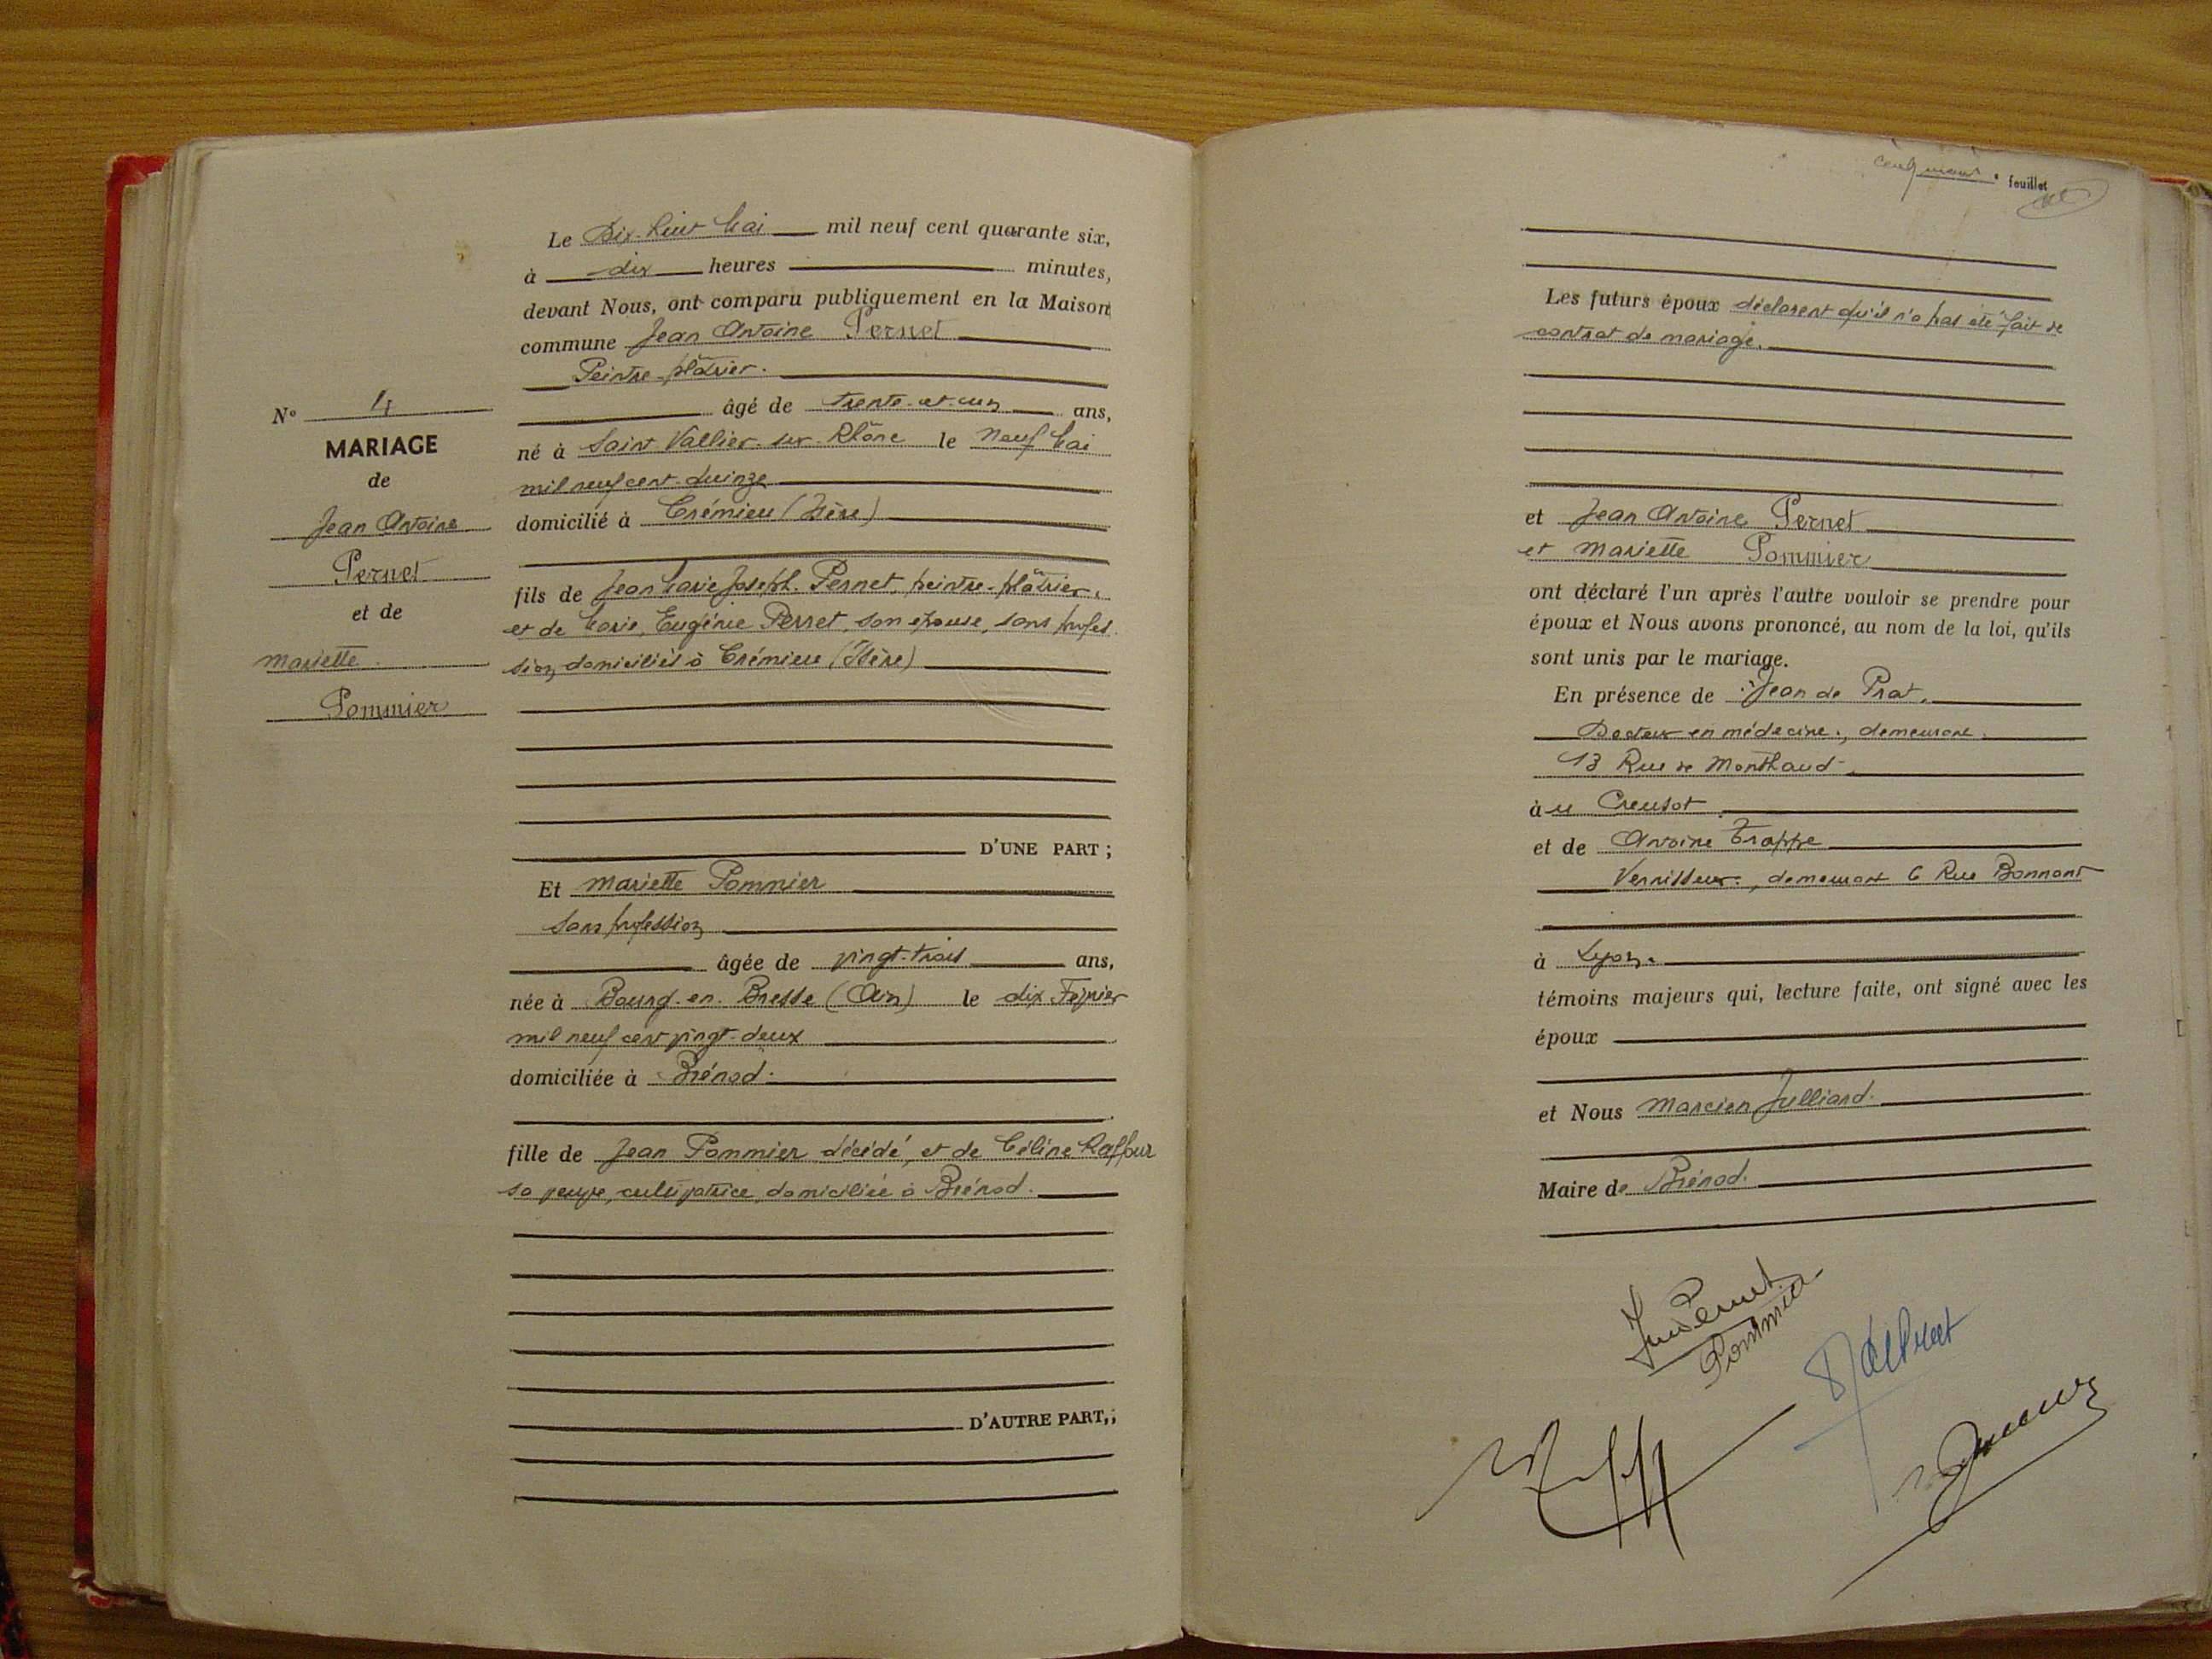 N° 4
MARIAGE
de
Jean Antoine
Pernet
et de
Mariette
Pommier
Le Dix-huit Mai mil neuf cent quarante six,
à dix heures minutes,
devant Nous, ont comparu publiquement en la Maison
commune Jean Antoine Pernet
Peintre-plâtrier.
âgé de trente-et-un ans,
né à Saint Vallier-sur-Rhône le neuf Mai
mil neuf cent quinze
domicilié à Crémieu (Isère)
fils de Jean Marie Joseph Pernet, peintre-plâtrier,
et de Marie, Eugénie Perret, son épouse, sans profes
sion, domiciliés à Crémieu (Isère)
D'UNE PART ;
Et Mariette Pommier
sans profession
âgée de vingt-trois ans,
née à Bourg-en-Bresse (Ain) le dix Février
mil neuf cent vingt-deux
domiciliée à Brénod.
fille de Jean Pommier décédé, et de Céline Raffour
sa veuve, cultivatrice, domiciliée à Brénod.
D'AUTRE PART,;
feuillet
Les futurs époux déclarent qu'il n'a pas été fait de
contrat de mariage.
et Jean Antoine Pernet
et Mariette Pommier
ont déclaré l'un après l'autre vouloir se prendre pour
époux et Nous avons prononcé, au nom de la loi, qu'ils
sont unis par le mariage.
En présence de : Jean de Prat,
Docteur en médecine, demeurant
13 Rue de Monthaud
àu Creusot
et de Antoine Trappe
Vernisseur, demeurant 6 Rue Bonnant
à Lyon.
témoins majeurs qui, lecture faite, ont signé avec les
époux
et Nous Marcien Julliard.
Maire de Brénod.
Pernet
Pommier